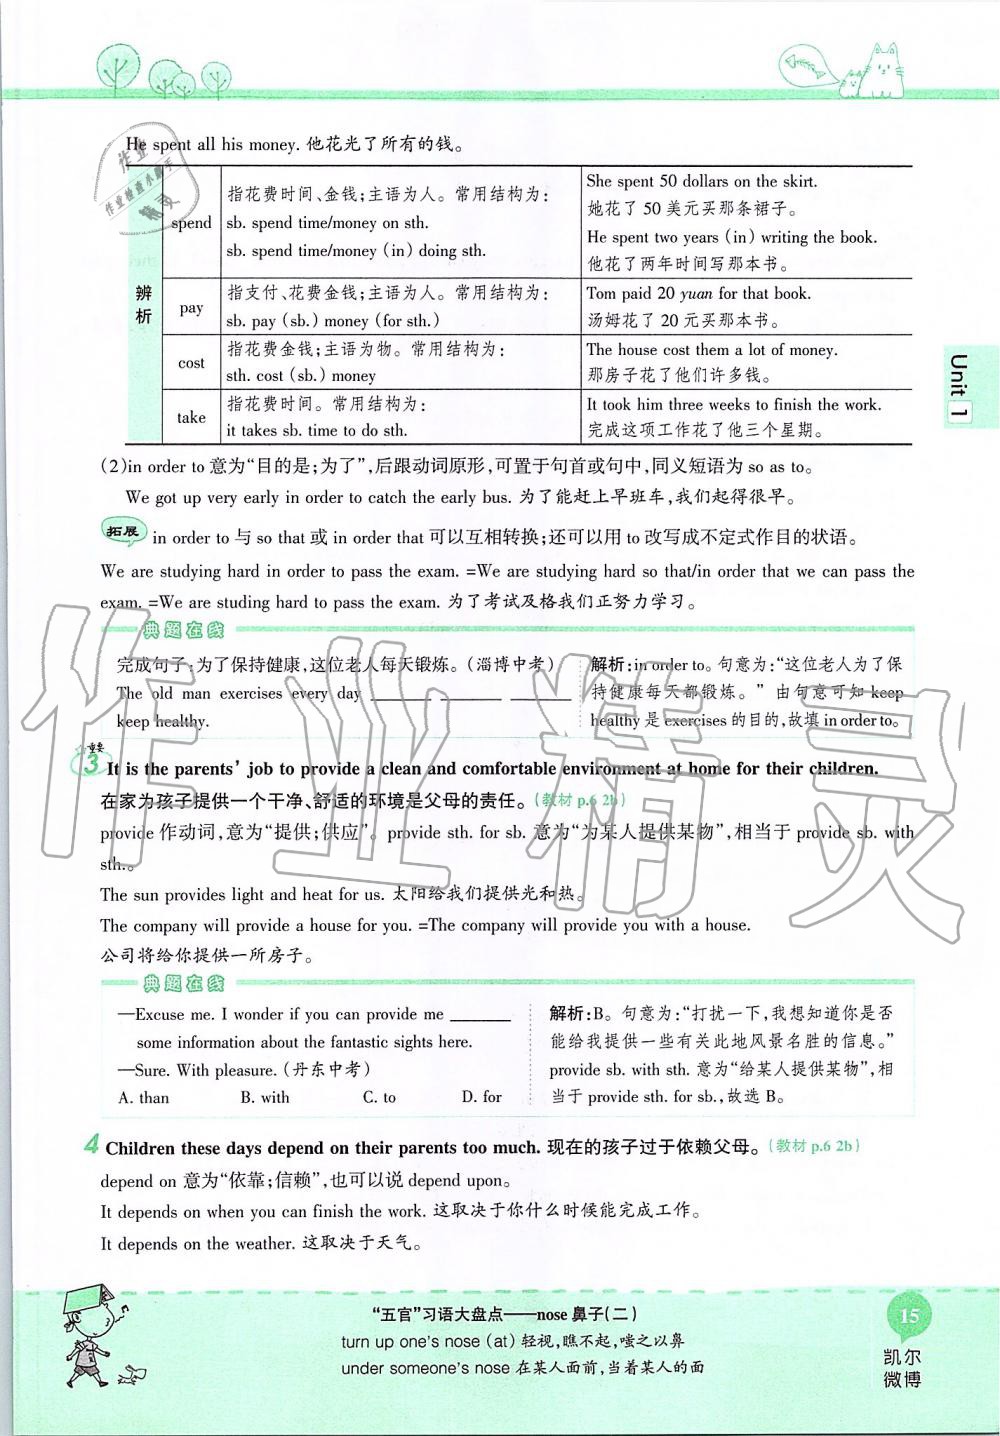 He spent all his money. 他花光了所有的钱。
辨析
spend
指花费时间、金钱;主语为人。常用结构为:
sb. spend time/money on sth.
sb. spend time/money (in) doing sth.
She spent 50 dollars on the skirt.
她花了 50 美元买那条裙子。
He spent two years (in) writing the book.
他花了两年时间写那本书。
pay
指支付、花费金钱;主语为人。常用结构为:
sb. pay (sb.) money (for sth.)
Tom paid 20 yuan for that book.
汤姆花了 20 元买那本书。
cost
指花费金钱;主语为物。常用结构为:
sth. cost (sb.) money
The house cost them a lot of money.
那房子花了他们许多钱。
take
指花费时间。常用结构为:
it takes sb. time to do sth.
It took him three weeks to finish the work.
完成这项工作花了他三个星期。
Unit 1
(2)in order to 意为“目的是;为了”,后跟动词原形,可置于句首或句中,同义短语为 so as to。
We got up very early in order to catch the early bus. 为了能赶上早班车,我们起得很早。
拓展 in order to 与 so that 或 in order that 可以互相转换;还可以用 to 改写成不定式作目的状语。
We are studying hard in order to pass the exam. =We are studying hard so that/in order that we can pass the
exam. =We are studing hard to pass the exam. 为了考试及格我们正努力学习。
典题在线
完成句子:为了保持健康,这位老人每天锻炼。(淄博中考)
The old man exercises every day ________ ________ ________
keep healthy.
解析:in order to。句意为:“这位老人为了保
持健康每天都锻炼。”由句意可知 keep
healthy 是 exercises 的目的,故填 in order to。
重要
3 It is the parents’ job to provide a clean and comfortable environment at home for their children.
在家为孩子提供一个干净、舒适的环境是父母的责任。(教材 p.6 2b)
provide 作动词,意为“提供;供应”。provide sth. for sb. 意为“为某人提供某物”,相当于 provide sb. with
sth.。
The sun provides light and heat for us. 太阳给我们提供光和热。
The company will provide a house for you. =The company will provide you with a house.
公司将给你提供一所房子。
典题在线
—Excuse me. I wonder if you can provide me ________
some information about the fantastic sights here.
—Sure. With pleasure. (丹东中考)
A. than B. with C. to D. for
解析:B。句意为:“打扰一下,我想知道你是否
能给我提供一些有关此地风景名胜的信息。”
provide sb. with sth. 意为“给某人提供某物”,相
当于 provide sth. for sb.,故选 B。
4 Children these days depend on their parents too much. 现在的孩子过于依赖父母。(教材 p.6 2b)
depend on 意为“依靠;信赖”,也可以说 depend upon。
It depends on when you can finish the work. 这取决于你什么时候能完成工作。
It depends on the weather. 这取决于天气。
“五官”习语大盘点——nose 鼻子(二)
turn up one's nose (at) 轻视,瞧不起,嗤之以鼻
under someone's nose 在某人面前,当着某人的面
15
凯尔
微博
作业精灵
作业
作业检查小助手
精灵